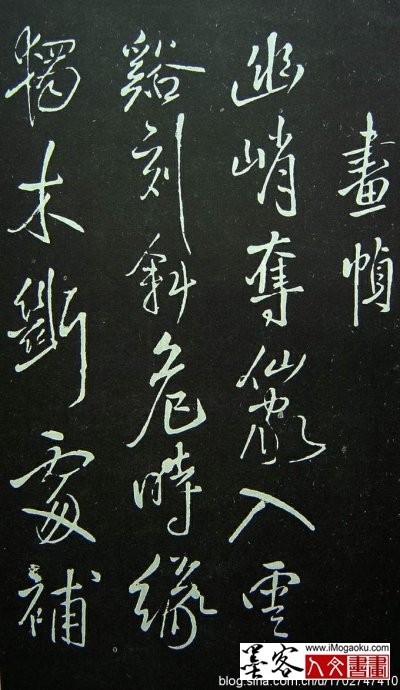 畫幀
幽峭奪仙入雲
谿刻斜危時緣
獨木斷處補
墨客
www.iMogaoku.com
人文書畫
blog.sina.com.cn/u/1702747410